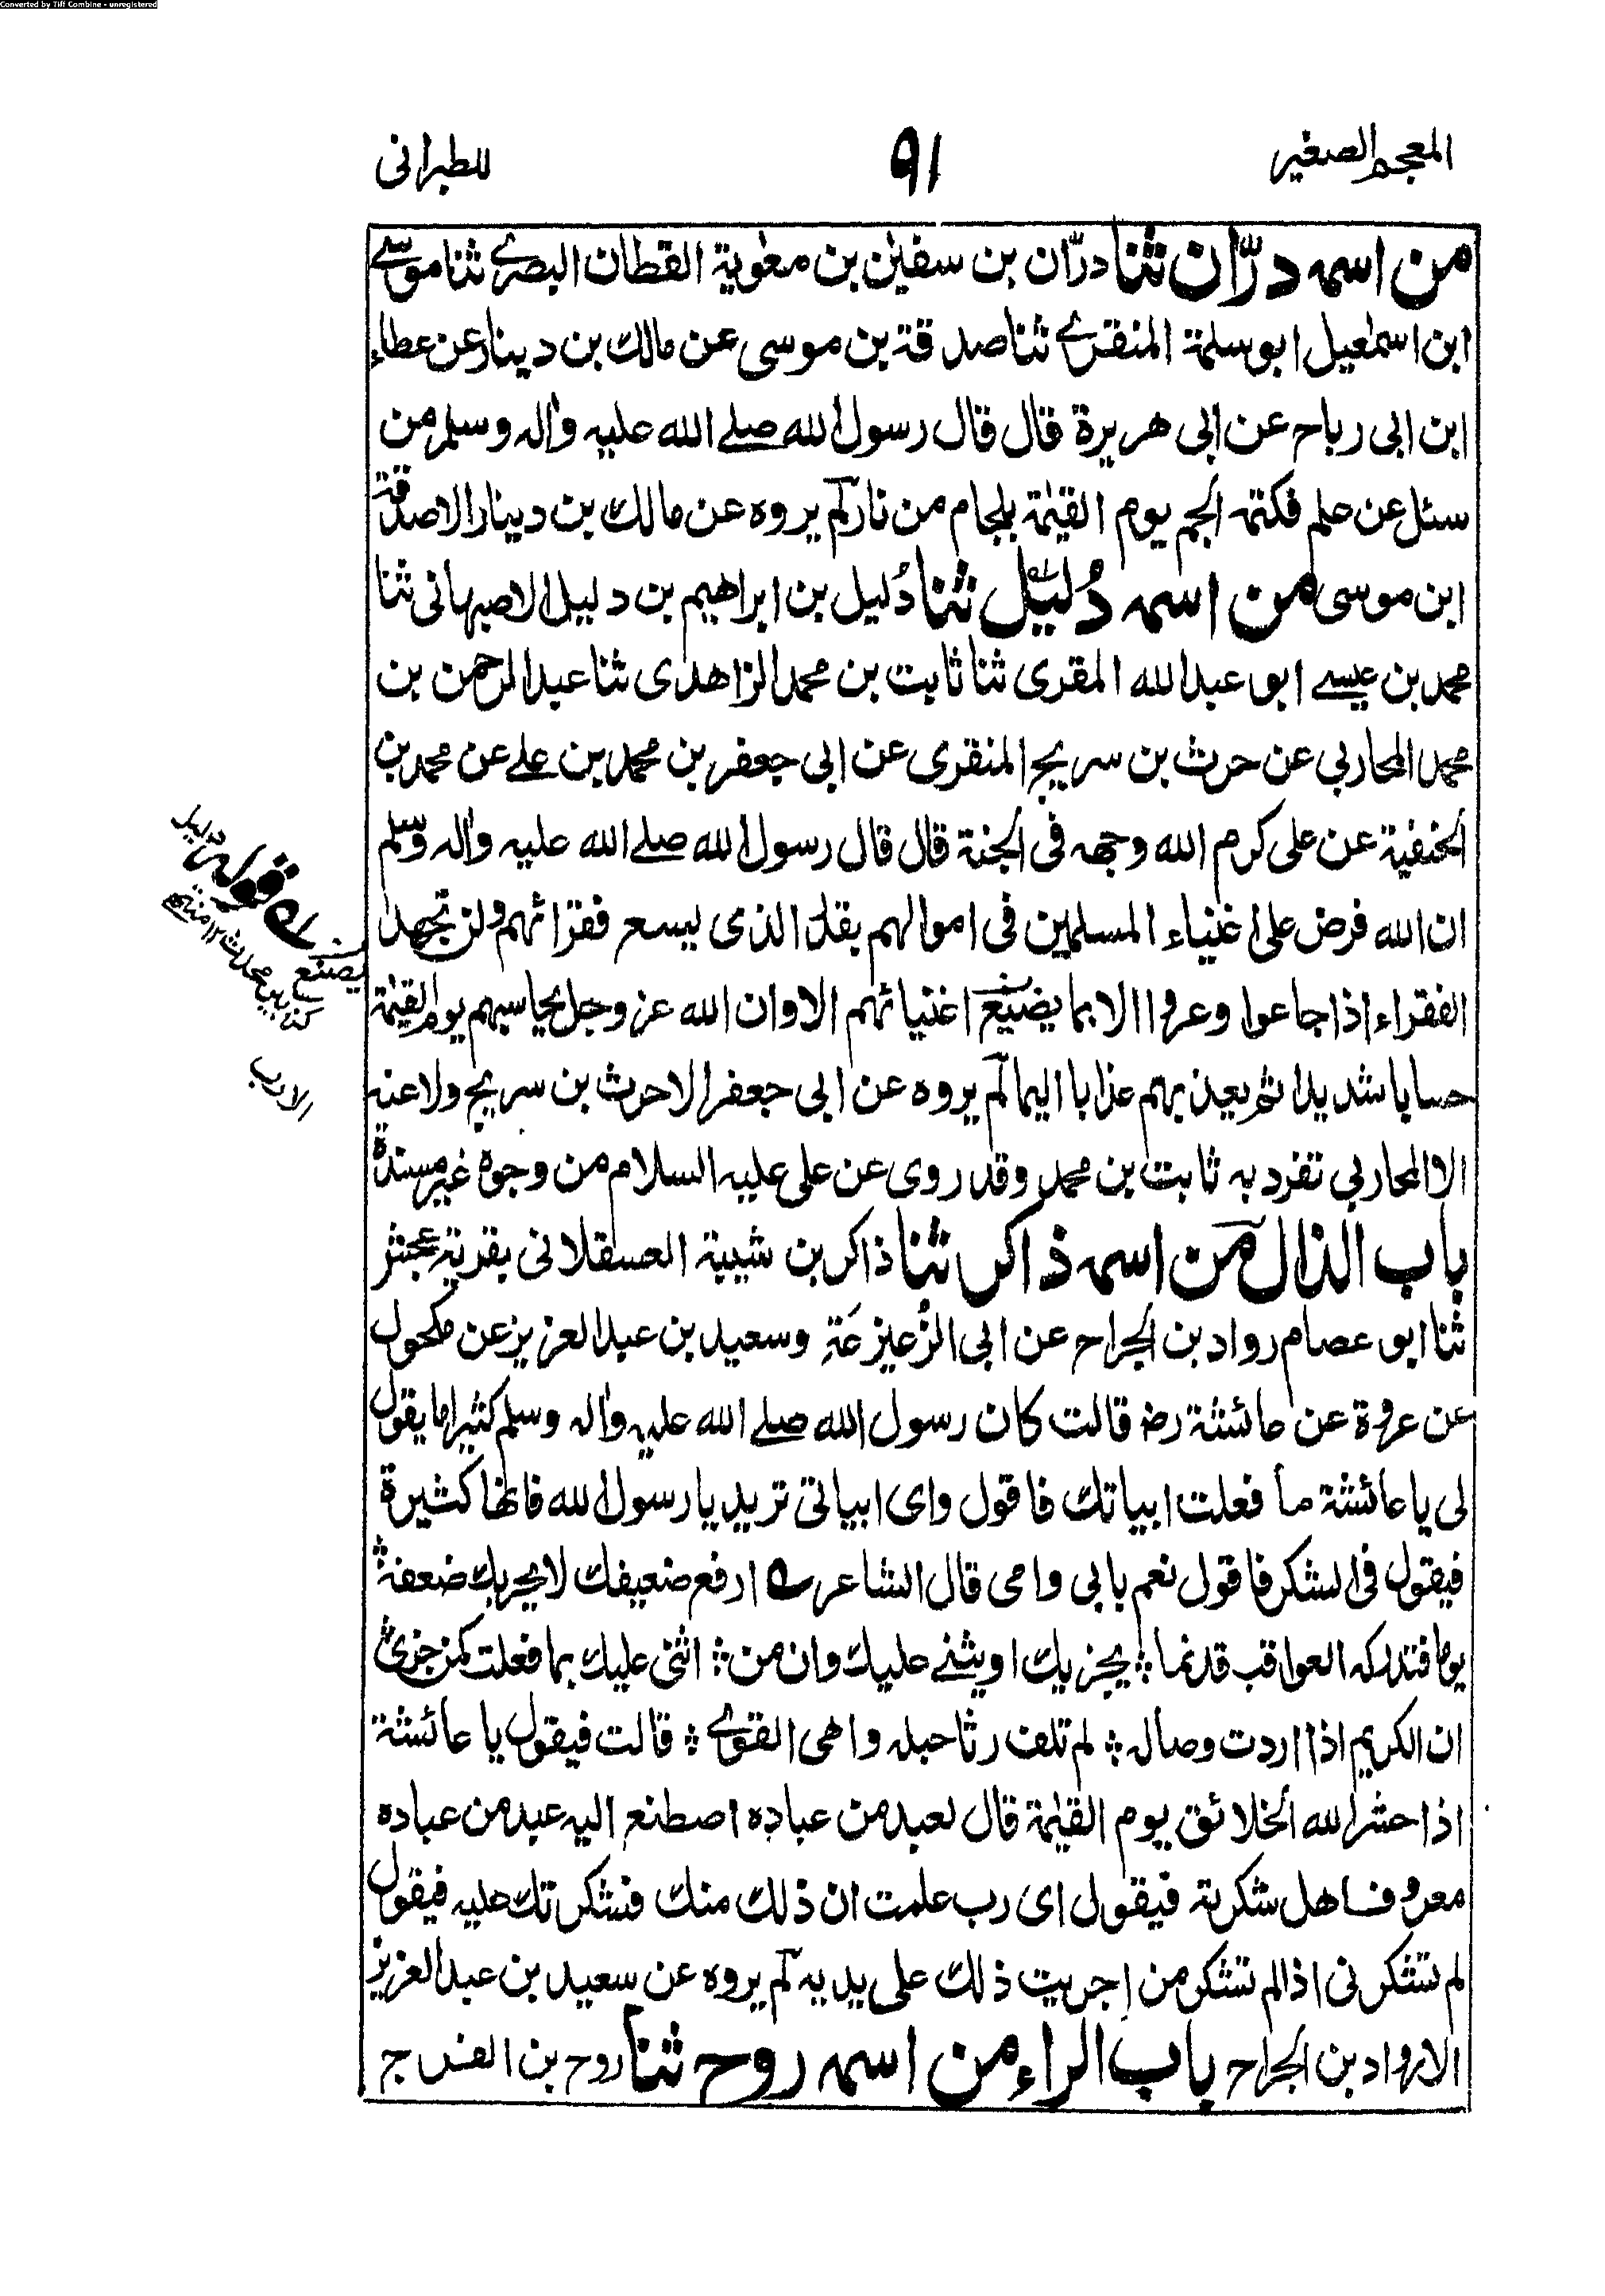 Converted by Tiff Combine - unregistered
المعجم الصغير ٩١ للطبرانی
من اسمه درّان ثنا درّان بن سفيٰن بن معٰوية القطان البصرے ثنا موسے
ابن اسمٰعيل ابو سلمة المنقرے ثنا صدقة بن موسى عن مالك بن دينار عن عطاء
ابن ابى رباح عن ابى هريرة قال قال رسول الله صلے الله عليه واٰله وسلم من
سئل عن علم فكتمه الجم يوم القيٰمة بلجام من نار لم يروه عن مالك بن دينار الا صدقة
ابن موسى من اسمه دُليل ثنا دُليل بن ابراهيم بن دليل الاصبهانى ثنا
محمد بن عيسے ابو عبد الله المقرى ثنا ثابت بن محمد الزاهدى ثنا عبد الرحمن بن
محمد المحاربي عن حرث بن سريج المنقرى عن ابى جعفر بن محمد بن علے عن محمد بن
الحنفية عن على كرم الله وجهه فى الجنة قال قال رسول الله صلے الله عليه واٰله وسلم
ان الله فرض على اغنياء المسلمين فى اموالهم بقدر الذى يسع فقرائهم ولن تجهد
الفقراء اذا جاعوا وعروا الا بما يضيع اغنيائهم الا وان الله عز وجل يحاسبهم يوم القيٰمة
حسابا شديدا ثم يعذبهم عذابا اليما لم يروه عن ابى جعفر الا حرث بن سريج ولا عنه
الا المحاربي تفرد به ثابت بن محمد وقد روى عن على عليه السلام من وجوه غير مسندة
باب الذال من اسمه ذاكر ثنا ذاكر بن شيبة العسقلانى بقرية عجنثر
ثنا ابو عصام رواد بن الجراح عن ابى الزُعيزعَةِ وسعيد بن عبد العزيز عن مكحول
عن عروة عن عائشة رضـ قالت كان رسول الله صلے الله عليه واٰله وسلم كثيرا ما يقول
لى يا عائشة ما فعلت ابياتك فاقول واى ابياتى تريد يا رسول الله فانها كثيرة
فيقول فى الشكر فاقول نعم بابى وامى قال الشاعر ؎ ارفع ضعيفك لا يحربك ضعفه ؞
يوما فتدركه العواقب قد نما ؞ يجزيك او يثنے عليك وان من ؞ اثنى عليك بما فعلت كمن جزى ؞
ان الكريم اذا اردت وصاله ؞ لم تلف رثا حبله واهى القوے ؞ قالت فيقول يا عائشة
اذا حشر الله الخلائق يوم القيٰمة قال لعبد من عباده اصطنع اليه عبد من عباده
معروفا هل شكرته فيقول اى رب علمت ان ذلك منك فشكرتك عليه فيقول
لم تشكرنى اذا لم تشكر من اجريت ذلك على يديه لم يروه عن سعيد بن عبد العزيز
الا رواد بن الجراح باب الراء من اسمه روح ثنا روح بن الفرج
قوله دليل
يصنع
الارب